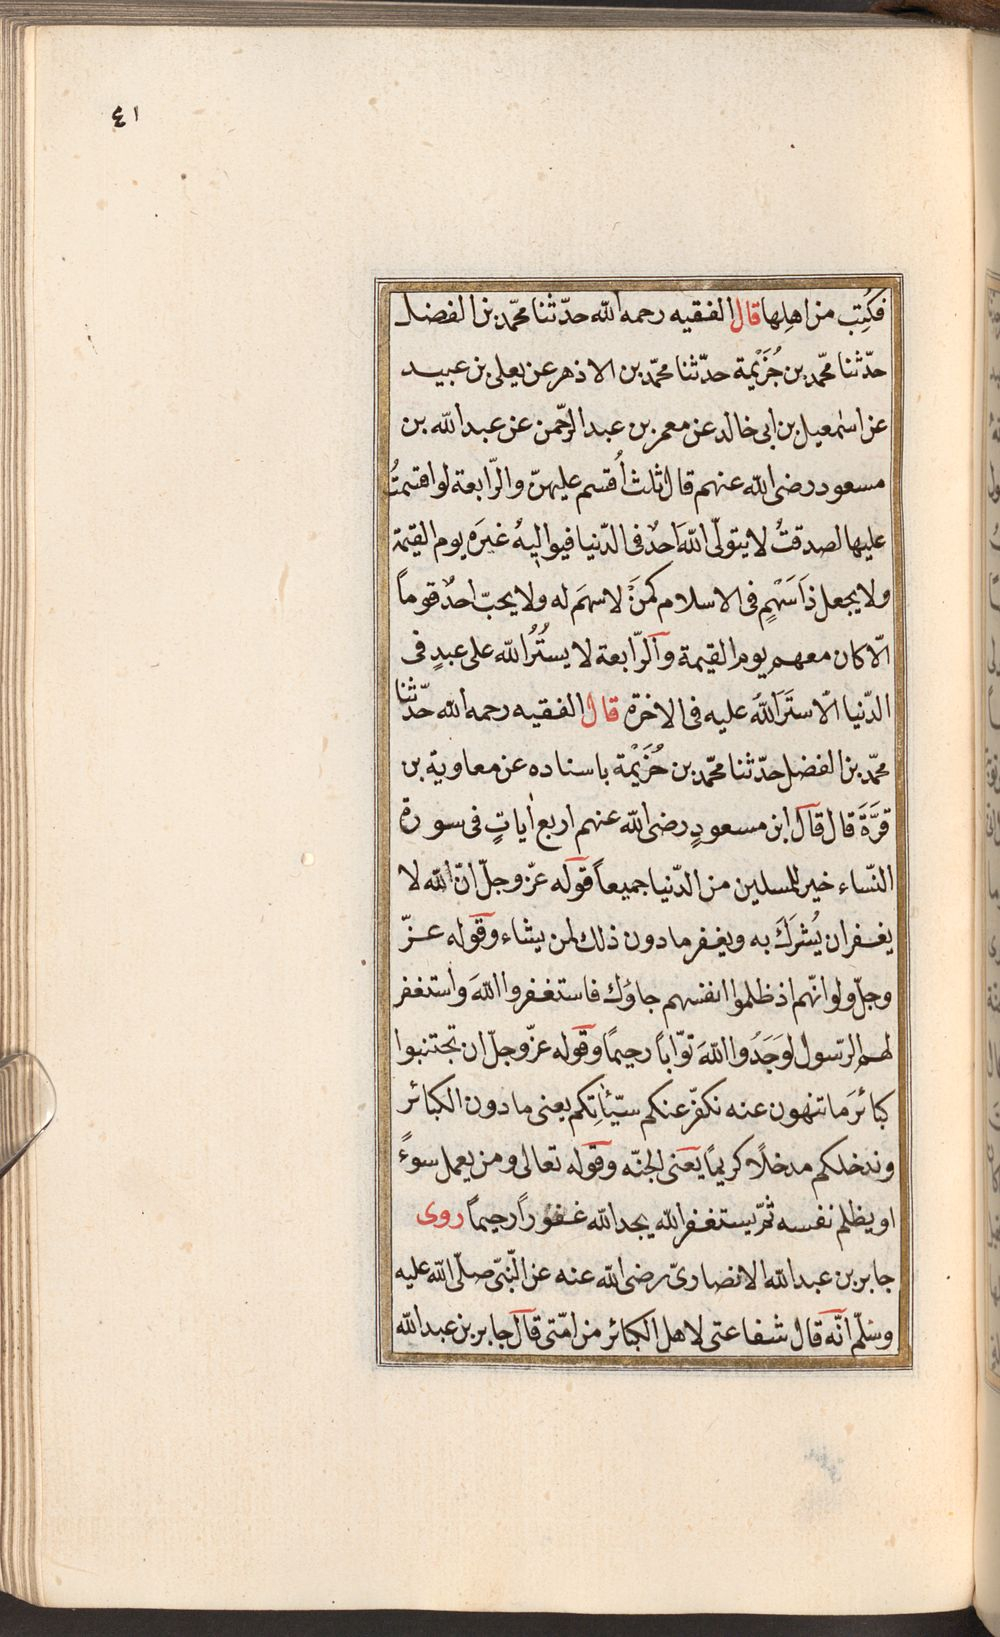 ٤١
فكُتِب من اهلِها قال الفقيه رحمه الله حدّثنا محمّد بن الفضل
حدّثنا محمّد بن خُزَيْمة حدّثنا محمّد بن الاذهر عن يعلى بن عبيد
عن اسمٰعيل بن ابى خالد عن معمر بن عبد الرّحمن عن عبد الله بن
مسعود رضى الله عنهم قال ثلث اُقسم عليهنّ والرّابعة لو اقسمتُ
عليها لصدقتُ لا يتولّى اللهَ احدٌ فى الدّنيا فيواليهُ غيرَه يوم القيمة
ولا يجعل ذاسَهْمٍ فى الاسلام كمَنْ لا سهَم له ولا يحبّ احدٌ قوماً
الّا كان معهم يوم القيمة والرّابعة لا يستُرُ الله على عبدٍ فى
الدّنيا الّا ستَرَ اللهُ عليه فى الاخرة قال الفقيه رحمه الله حدّثنا
محمّد بن الفضل حدّثنا محمّد بن خُزَيْمة باسناده عن معاوية بن
قرَّةَ قال قال ابن مسعودٍ رضى الله عنهم اربع اٰياتٍ فى سورة
النّساء خير للمسلين من الدّنيا جميعاً قوله عزّ وجلّ انّ الله لا
يغفر ان يُشرَكَ به ويغفر ما دون ذلك لمن يشاء وقوله عزّ
وجلّ ولو انّهم اذ ظلموا انفسهم جاؤك فاستغفروا اللهَ واستغفر
لهم الرّسول لوَجَدُوا اللهَ توّاباً رحيمًا وقوله عزّ وجلّ ان تجتنبوا
كبائرَ ما تنهون عنه نكفّر عنكم سيّئاتِكم يعنى ما دون الكبائر
وندخلكم مدخلًا كريمًا يعنى الجنّه وقوله تعالى ومن يعمل سوءً
او يظلم نفسه ثمّ يستغفر الله يجد الله غفوراً رحيماً روى
جابر بن عبد الله الانصارىّ رضى الله عنه عن النّبىّ صلّى الله عليه
وسلّم انّه قال شفاعتى لاهل الكبائر من امّتى قال جابر بن عبد الله